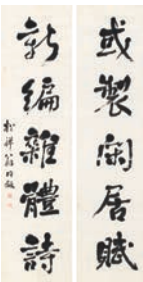 或製閑居賦
新編雜體詩
松禪翁同龢